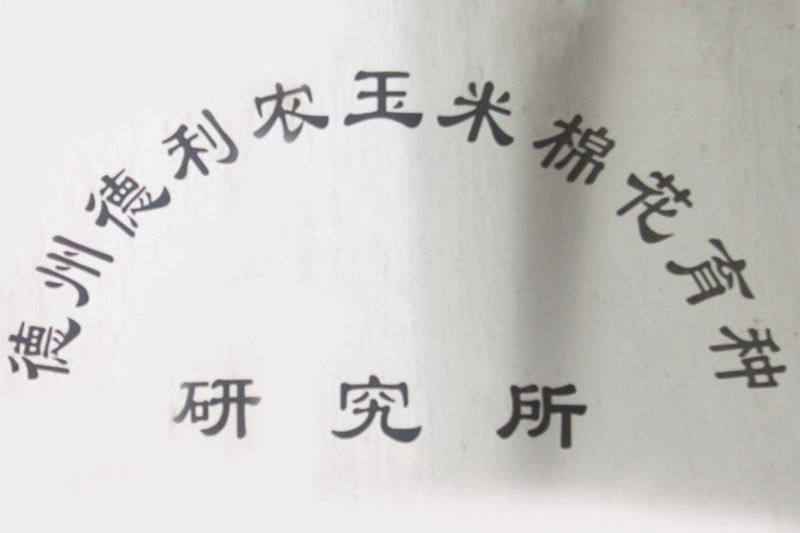 德州德利农玉米棉花育种
研究所